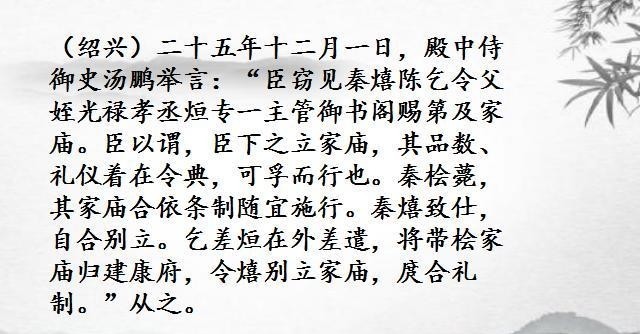 （绍兴）二十五年十二月一日，殿中侍
御史汤鹏举言：“臣窃见秦熺陈乞令父
姪光禄孝丞烜专一主管御书阁赐第及家
庙。臣以谓，臣下之立家庙，其品数、
礼仪着在令典，可孚而行也。秦桧薨，
其家庙合依条制随宜施行。秦熺致仕，
自合别立。乞差烜在外差遣，将带桧家
庙归建康府，令熺别立家庙，庹合礼
制。”从之。